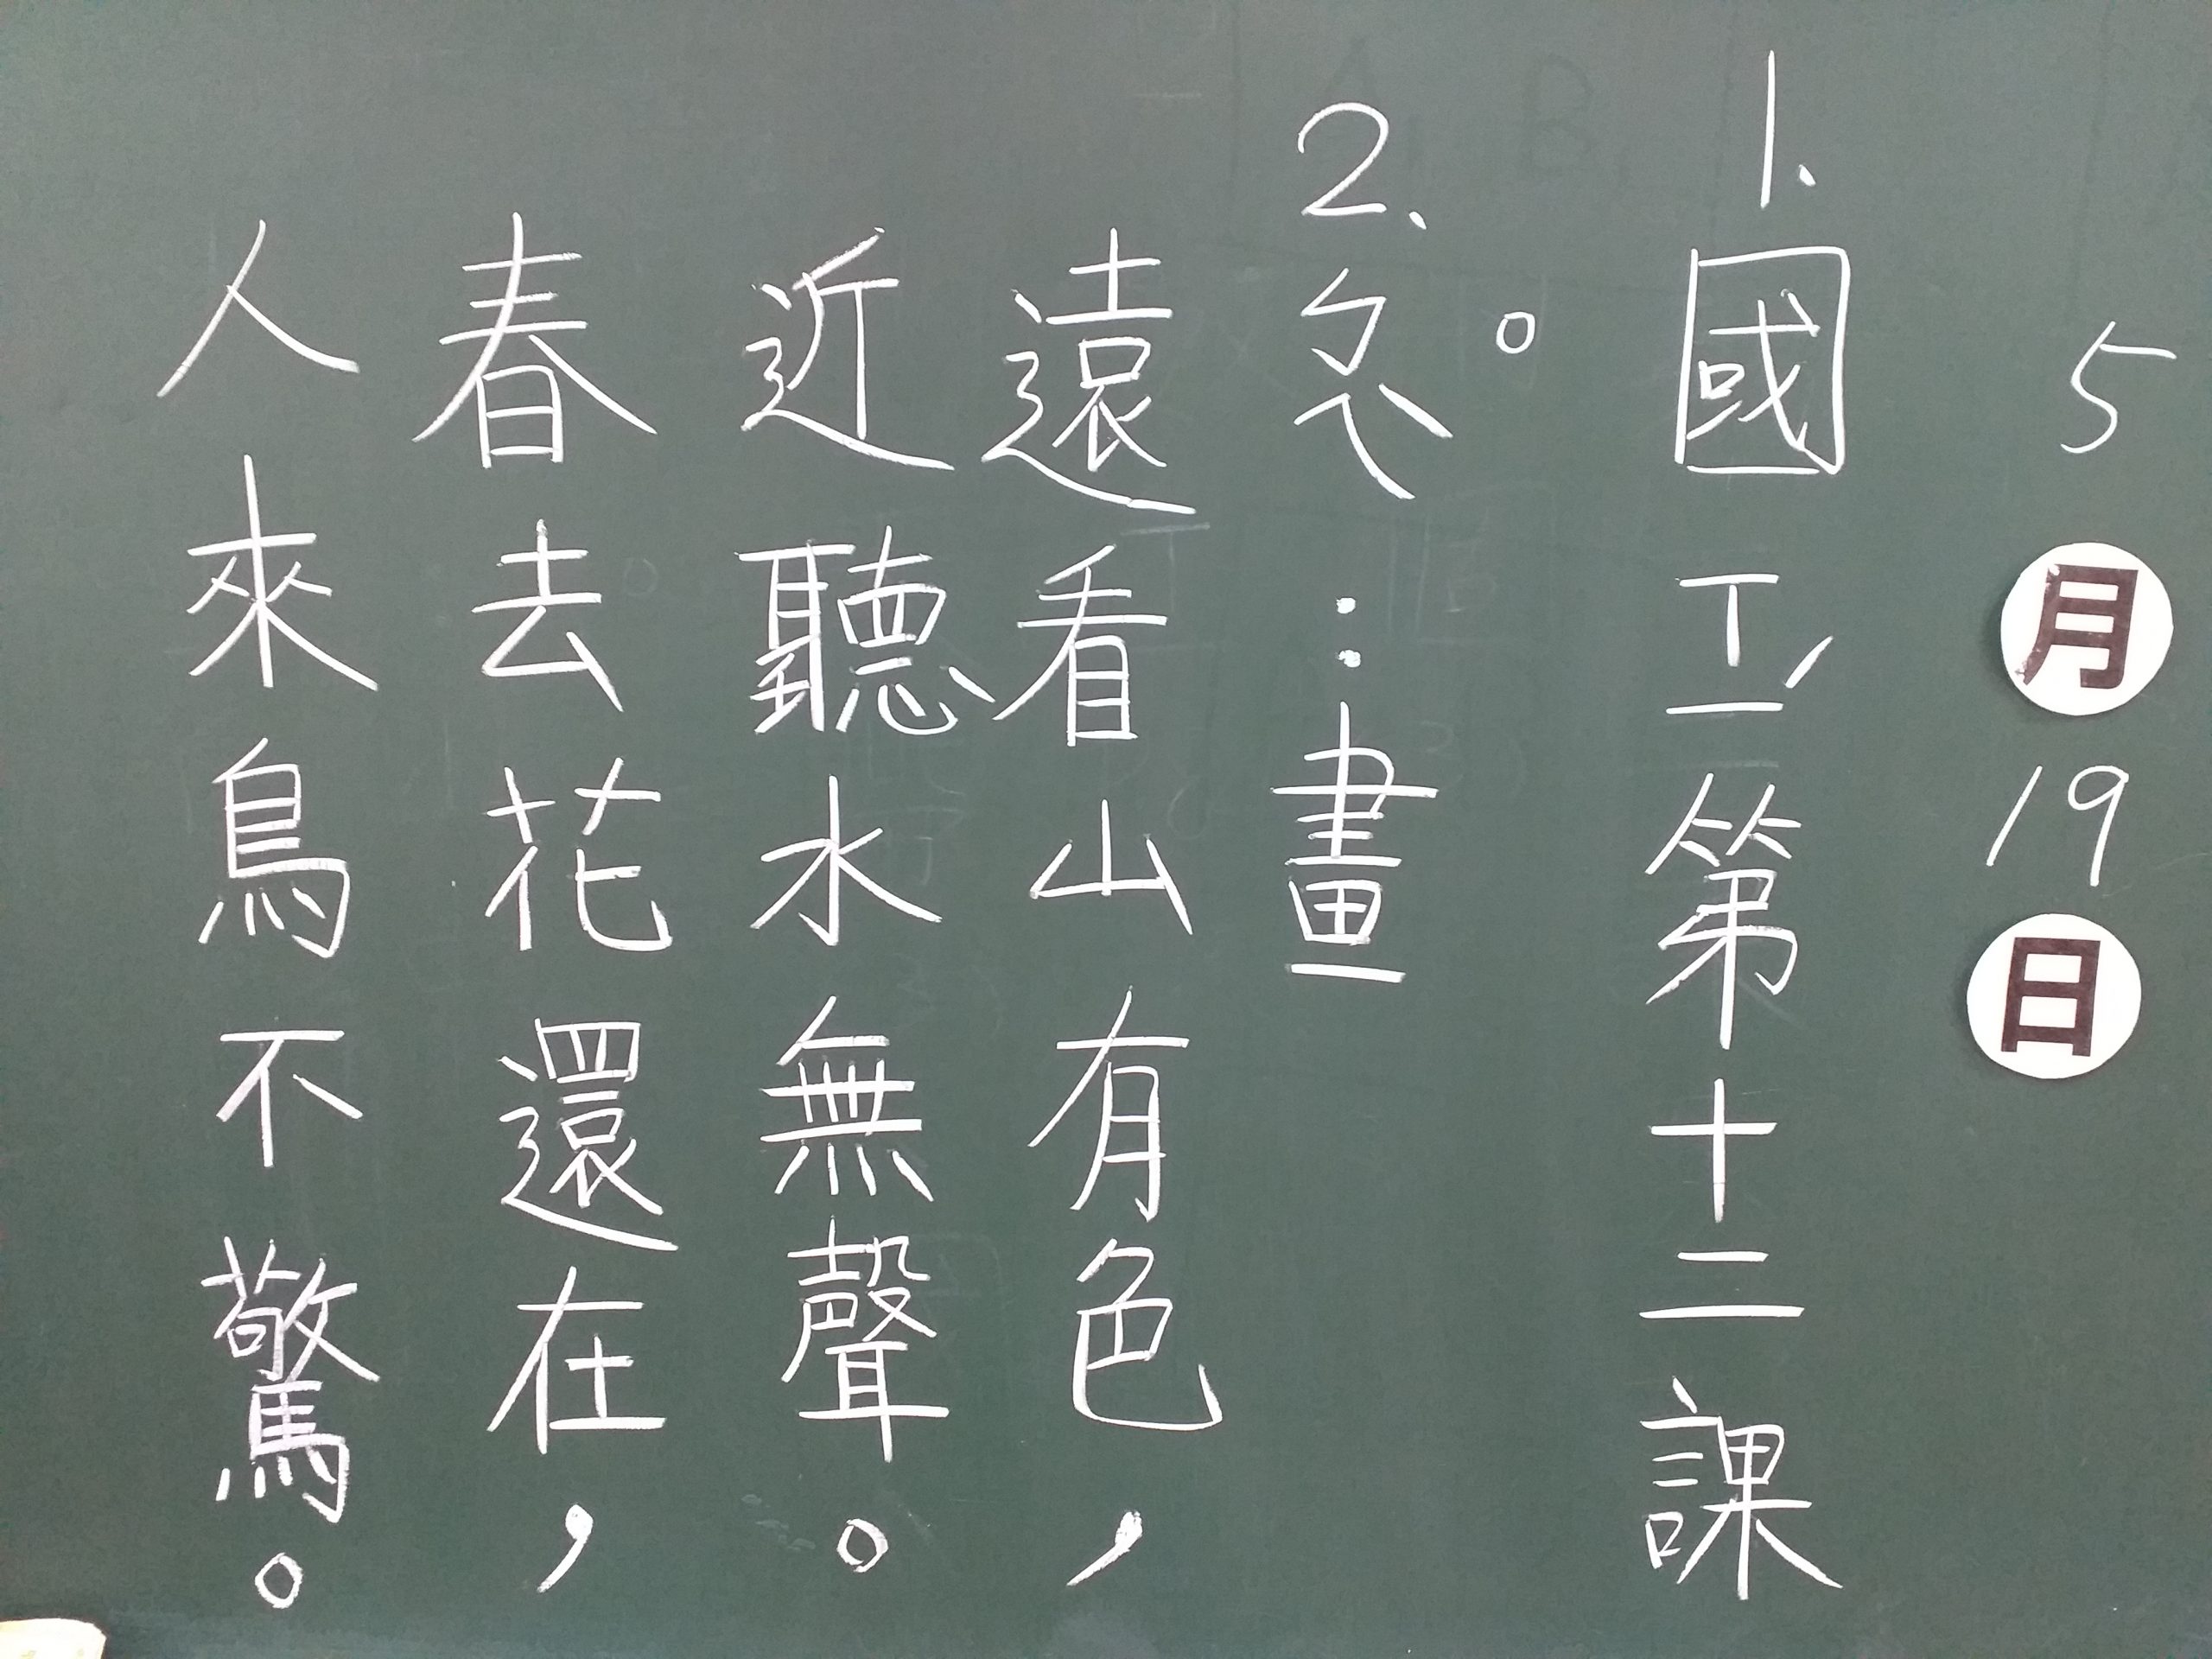 5月19日
1、國ㄒㄧˊ第十二課
。
2、ㄅㄟˋ：畫
遠看山有色，
近聽水無聲。
春去花還在，
人來鳥不驚。